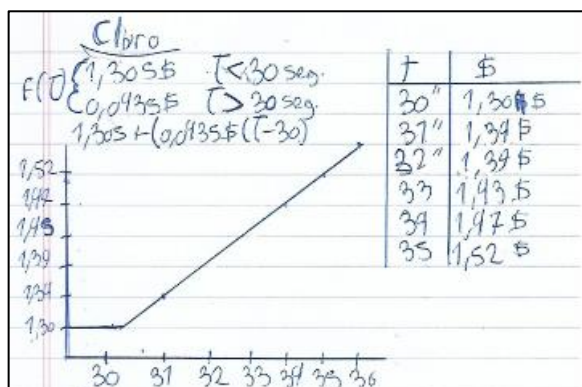 Claro
F(T) { 1,305$ T < 30 seg.
0,0435$ T > 30 seg.
1,305 + (0,0435$ (T-30)
T $
30" 1,30 $
31" 1,34 $
32" 1,39 $
33 1,43 $
34 1,47 $
35 1,52 $
1,52
1,47
1,43
1,39
1,34
1,30
30 31 32 33 34 35 36